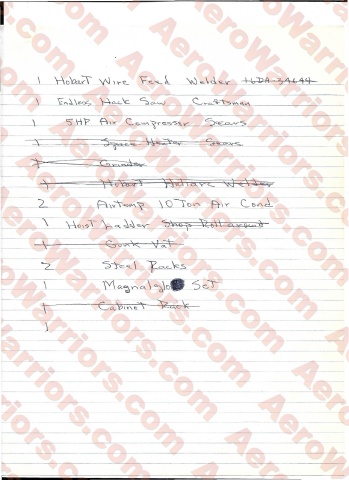 1 Hobart Wire Feed Welder
1 Endless Hack Saw Craftsman
1 5HP Air Compresser Sears
1 Space Heater Sears
1 Grinder
1 Hobart Heliarc Welder
2 Airtemp 10 Ton Air Cond
1 Hoist Ladder Shop Roll around
1 Vat
2 Steel Racks
1 Set
1 Cabinet Rack
1
AeroWarriors.com